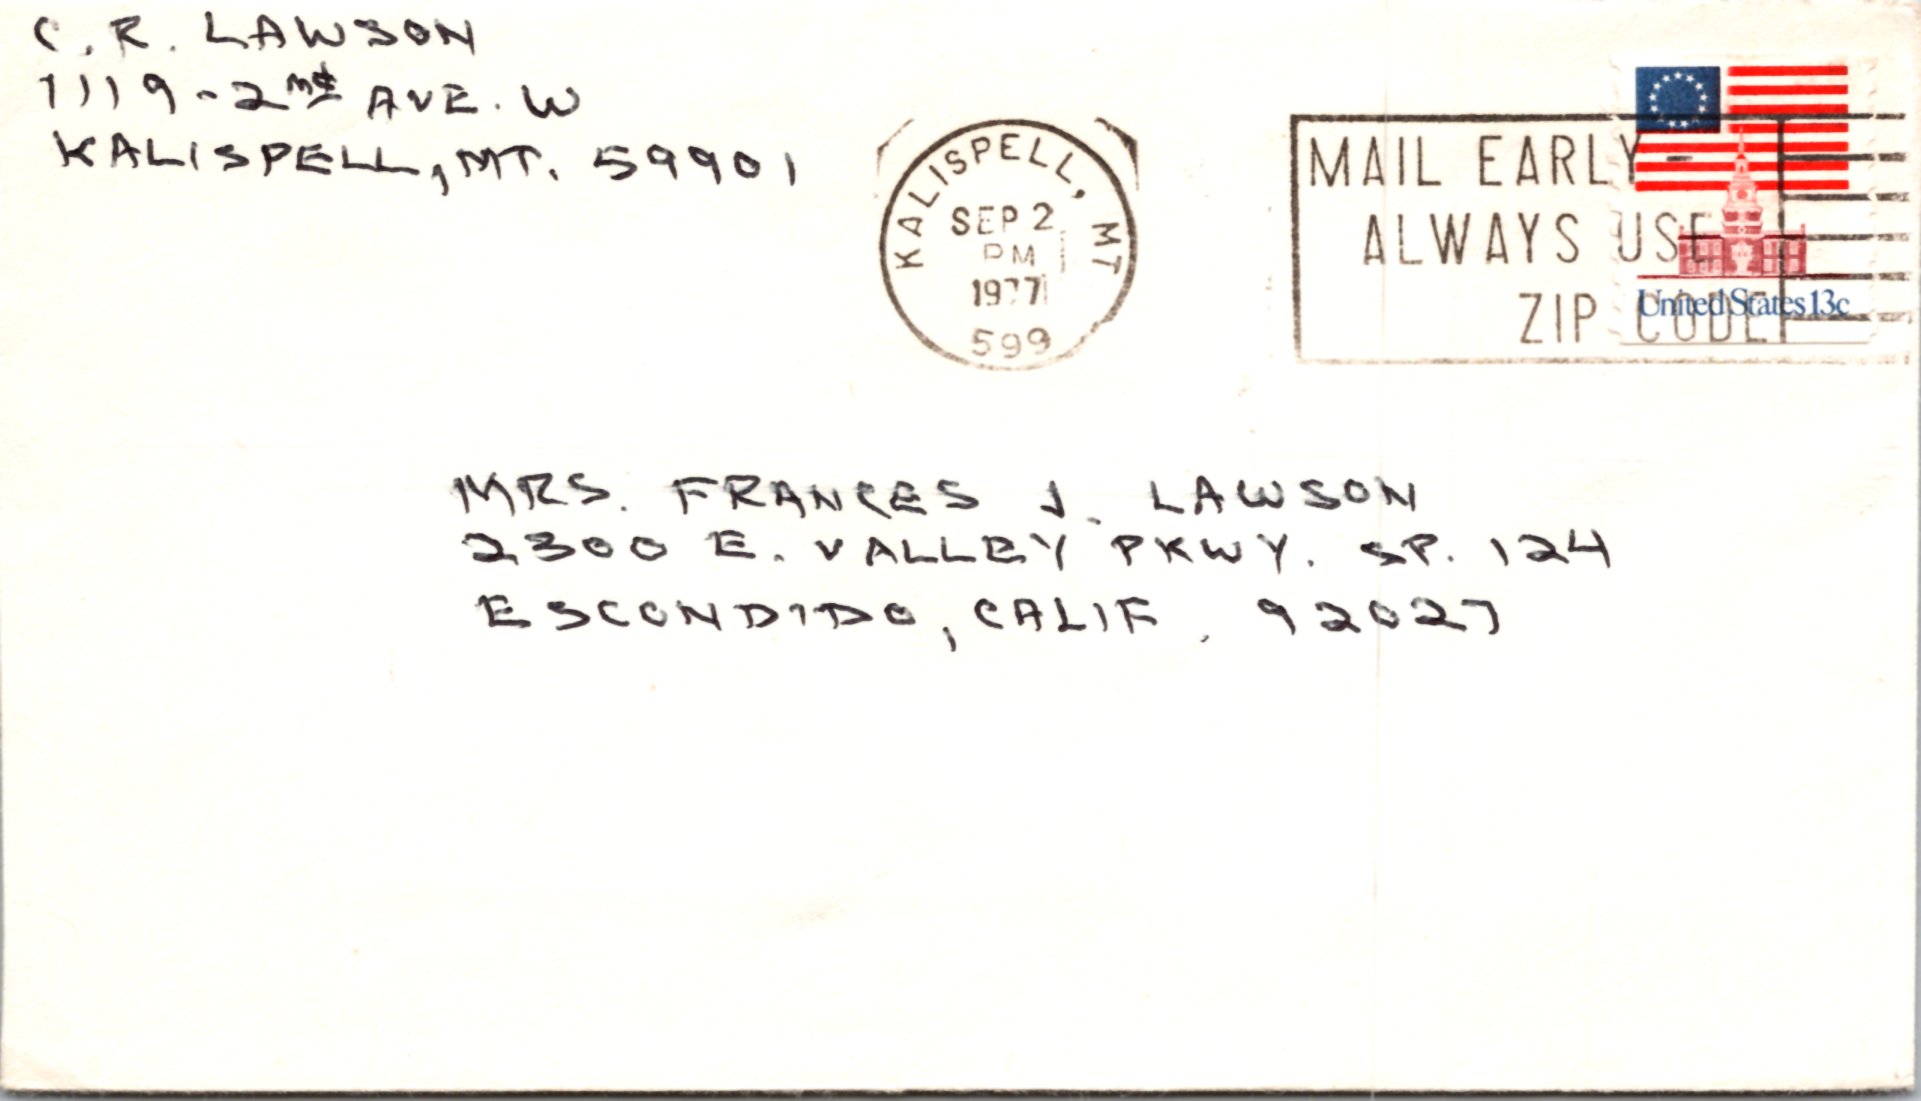 C. R. LAWSON
1119-2nd AVE. W
KALISPELL, MT. 59901
KALISPELL, MT
SEP 2
PM
1977
599
MAIL EARLY-
ALWAYS USE
ZIP CODE
United States 13c
MRS. FRANCES J. LAWSON
2300 E. VALLEY PKWY. SP. 124
ESCONDIDO, CALIF. 92027